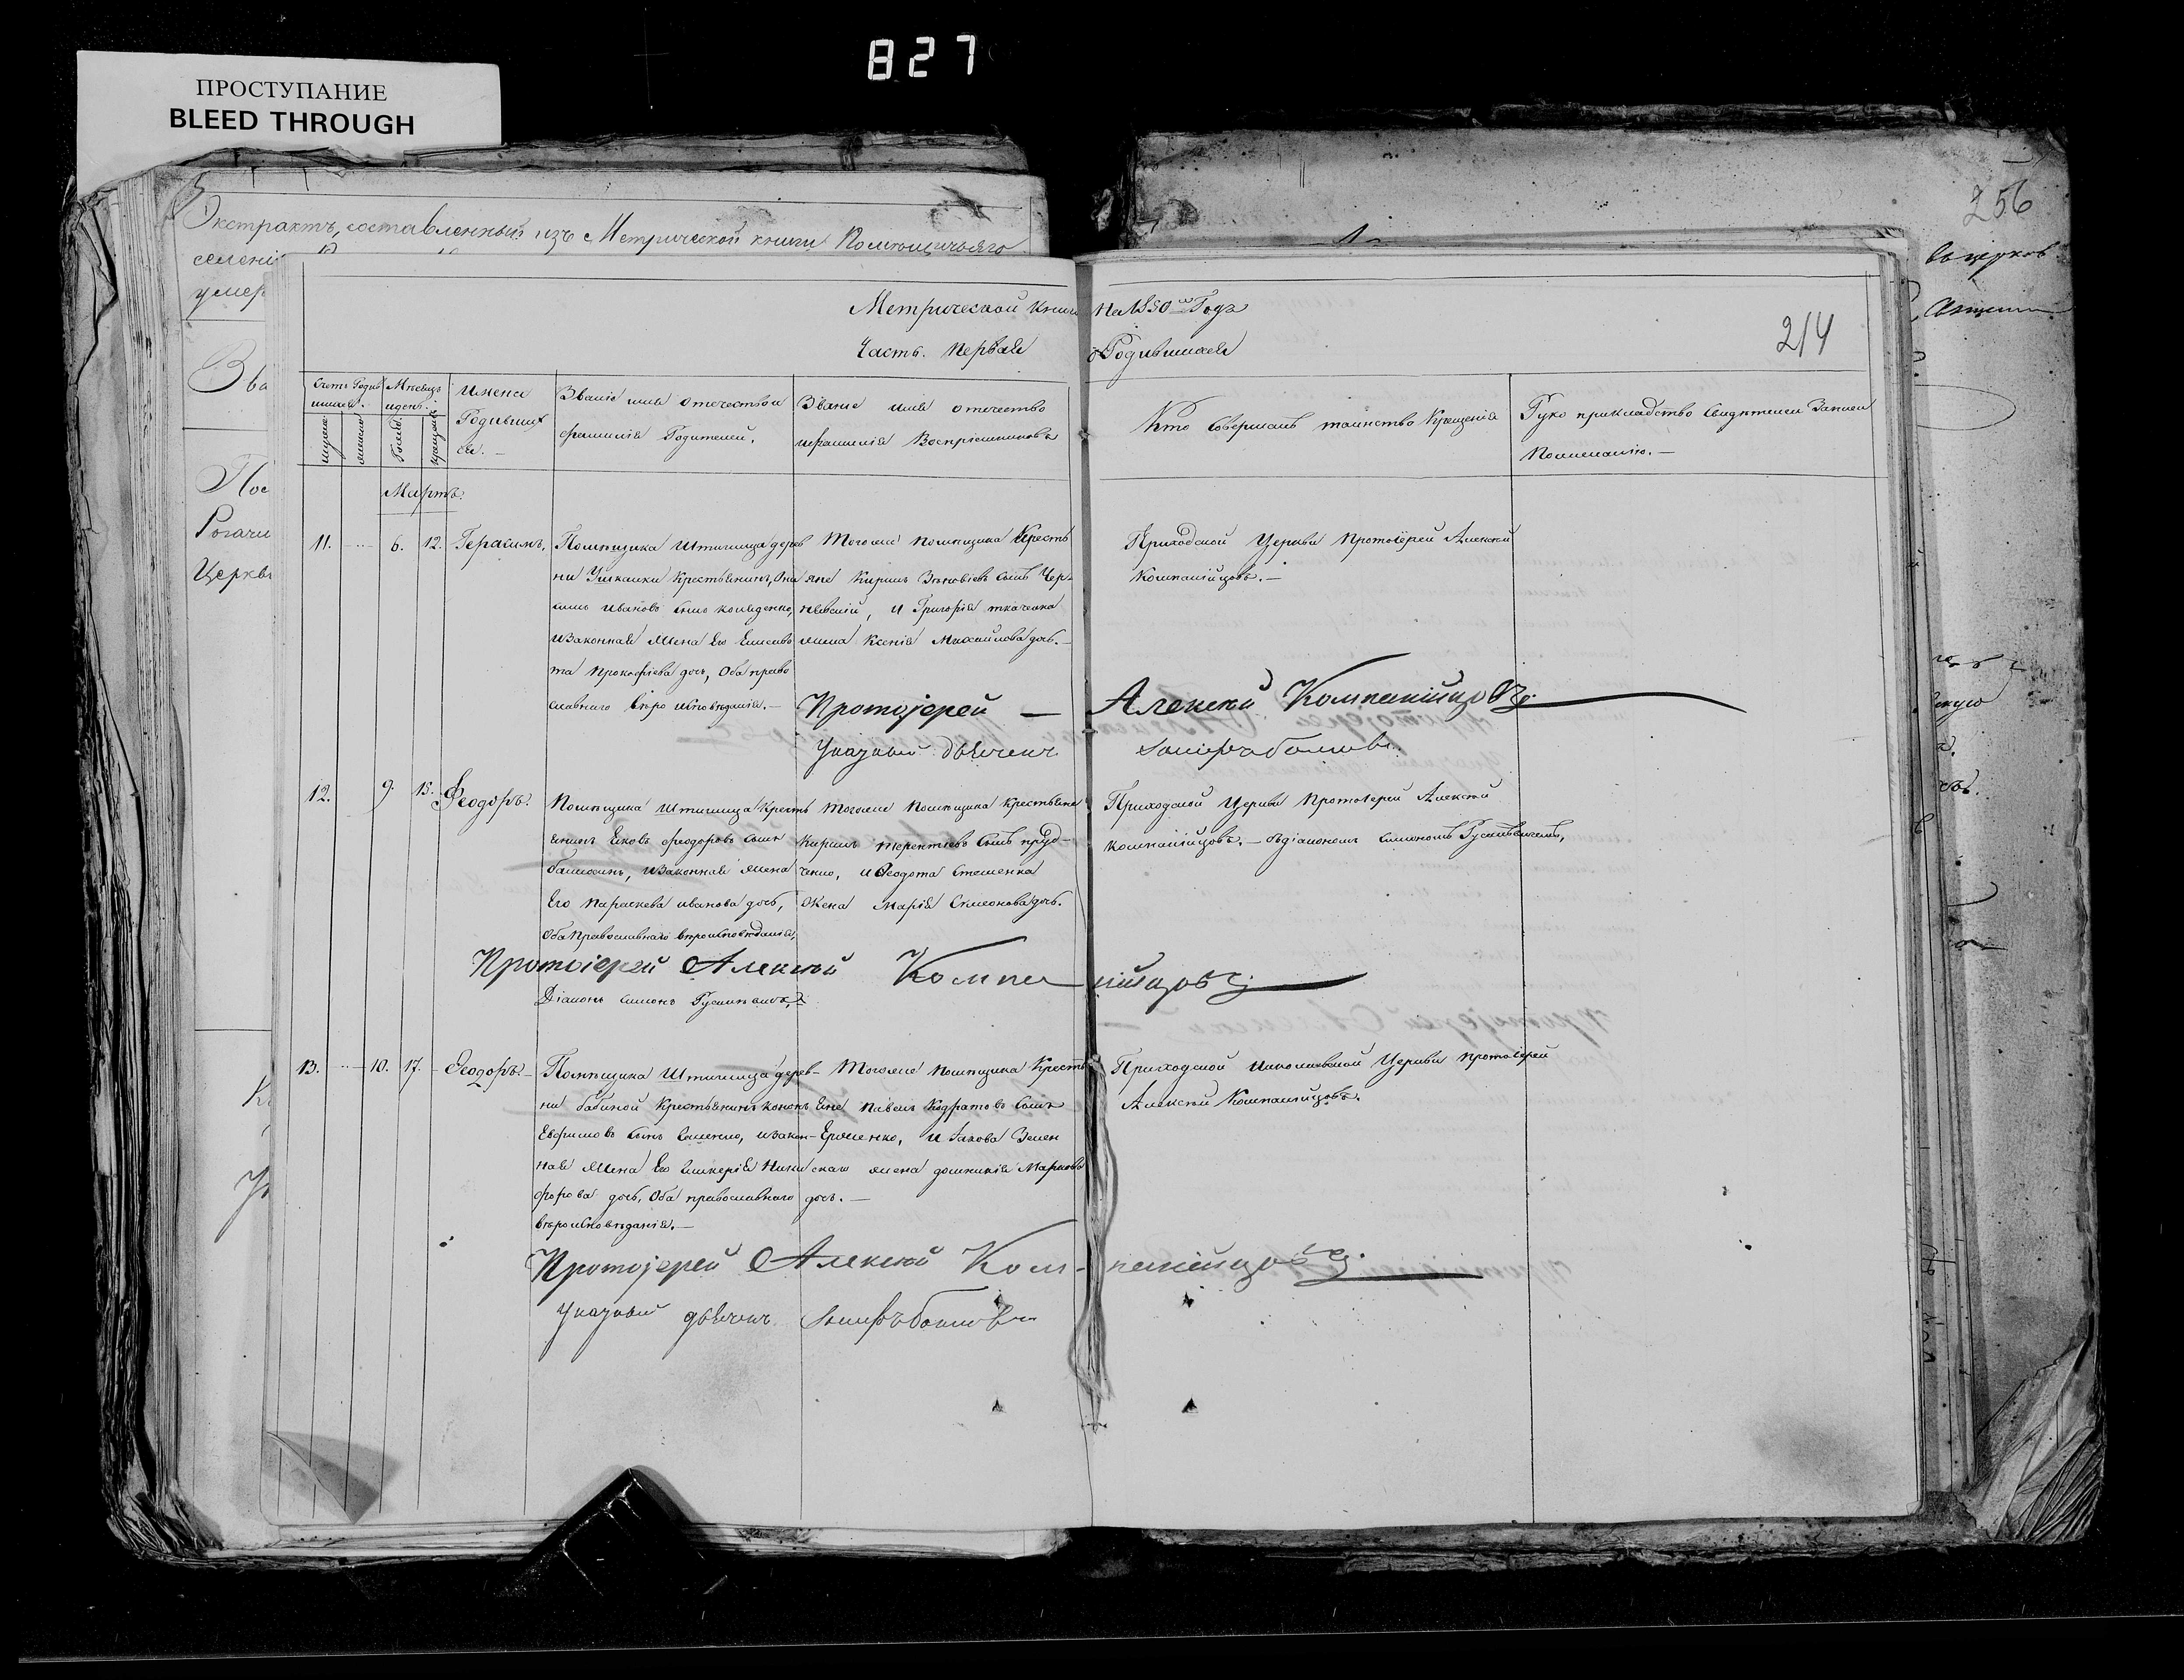 827
ПРОСТУПАНИЕ
BLEED THROUGH
256
Экстрактъ, составленный изъ Метрической книги Помѣщичьяго
Метрической книги на 1850й Годъ
214
Часть. Первая о Родившихся
Счетъ Родившихся. Мѣсяцъ и день.
Имена Родившихся. —
Званіе имя отечество и фамилія Родителей.
Званіе имя отечество и фамилія Воспріемниковъ
Кто совершалъ таинство Крещенія
Руко прикладство свидѣтелей Записи
По желанію. —
Мартъ.
11. 6. 12. Герасимъ,
Помѣщика Штигмица дерев
ни Крестьянинъ, Они
симъ Ивановъ сынъ
и законная жена Его Елисаве
та Прокофіева дочь, Оба право
славнаго вѣро исповѣданія. —
Тогоже помѣщика Кресть
яне Кирилъ Зѣновіевъ сынъ Чер-
и Григорія Ткаченка
жена Ксенія Михайлова дочь. —
Приходской Церкви Протоіерей Алексѣй
Компанійцовъ. —
Протоіерей — Алексѣй Компанійцовъ.
Указный дьячекъ
12. 9. 15. Феодоръ.
Помѣщика Штиглица Кресть
янинъ Яковъ Феодоровъ сынъ
и законная жена
Его Параскева Иванова дочь,
Оба Православнаго вѣроисповѣданія,
Тогоже Помѣщика Крестьяне
Кирилъ Терентьевъ сынъ Груд-
ченко, и Феодота Стешенка
Жена Марія Симеонова дочь.
Приходской Церкви Протоіерей Алексѣй
Компанійцовъ. — съ діакономъ Симономъ
Протоіерей Алексѣй Компанійцовъ.
Діаконъ Симонъ
13. 10. 17. Феодоръ
Помѣщика Штиглица дерев-
ни Бабиной Крестьянинъ Кононъ
Евфимовъ сынъ и закон-
ная жена Его Гликерія Ники
форова дочь, Оба православнаго
вѣроисповѣданія. —
Тогоже помѣщика Кресть
яне Павелъ Кодратовъ сынъ
Ермоленко, и Іакова Зелен
скаго жена Домникія Маркова
дочь. —
Приходской Николаевской Церкви Протоіерей
Алексѣй Компанійцовъ.
Протоіерей Алексѣй Компанійцовъ.
Указный дьячекъ